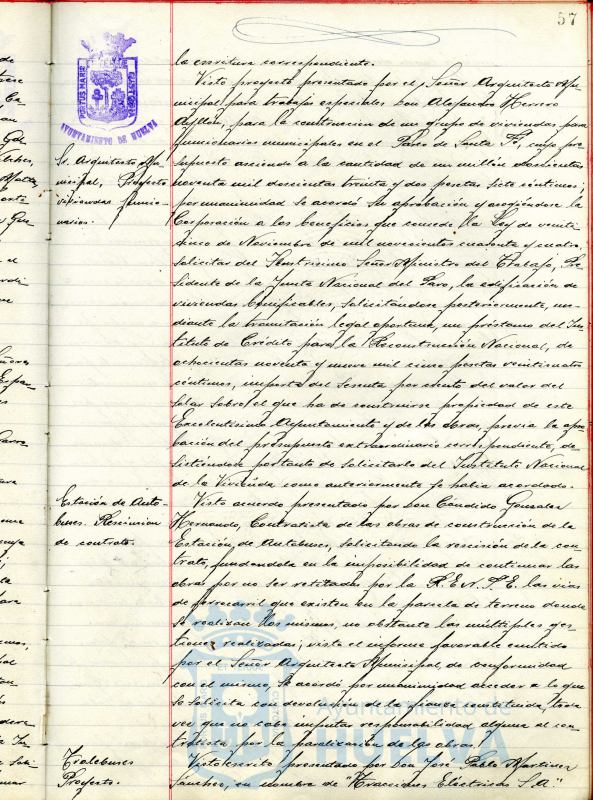 57
la escritura correspondiente.
PORTUS MARIS
CUSTODIA
AYUNTAMIENTO DE HUELVA
Sr. Arquitecto Mu-
nicipal, Proyecto
viviendas funcio-
narios.
Visto proyecto presentado por el Señor Arquitecto Mu-
nicipal para trabajos especiales Don Alejandro Herrero
Ayllón, para la construcción de un grupo de viviendas para
funcionarios municipales en el Paseo de Santa Fe, cuyo pre-
supuesto asciende a la cantidad de un millón doscientas
noventa mil doscientas treinta y dos pesetas siete céntimos;
por unanimidad se acordó su aprobación y acogiéndose la
Corporación a los beneficios que concede la Ley de veinti-
cinco de Noviembre de mil novecientos cuarenta y cuatro,
solicitar del Ilustrísimo Señor Ministro del Trabajo, Pre-
sidente de la Junta Nacional del Paro, la edificación de
viviendas bonificables, solicitándose posteriormente, me-
diante la tramitación legal oportuna, un préstamo del Ins-
tituto de Crédito para la Reconstrucción Nacional, de
ochocientas noventa y nueve mil cinco pesetas veinticuatro
céntimos, importe del sesenta por ciento del valor del
solar sobre el que ha de construirse propiedad de este
Excelentísimo Ayuntamiento y de las obras, previa la apro-
bación del presupuesto extraordinario correspondiente, de-
sistiéndose por tanto de solicitarlo del Instituto Nacional
de la Vivienda como anteriormente se había acordado.
Estación de Auto-
buses. Rescisión
de contrato.
Visto acuerdo presentado por Don Cándido González
Hernando, Contratista de las obras de construcción de la
Estación de Autobuses, solicitando la rescisión de la con-
trata, fundándola en la imposibilidad de continuar las
obras por no ser retiradas por la R.E.N.F.E. las vías
de ferrocarril que existen en la parcela de terreno donde
se realizan las mismas, no obstante las múltiples ges-
tiones realizadas; visto el informe favorable emitido
por el Señor Arquitecto Municipal, de conformidad
con el mismo se acordó por unanimidad acceder a lo que
se solicita con devolución de la fianza constituida, toda
vez que no cabe imputar responsabilidad alguna al con-
tratista por la paralización de las obras.
Trolebuses
Proyecto.
Visto escrito presentado por Don José Pablo Martínez
Sánchez, en nombre de "Tracciones Eléctricas S.A."
Ayuntamiento de
HUELVA